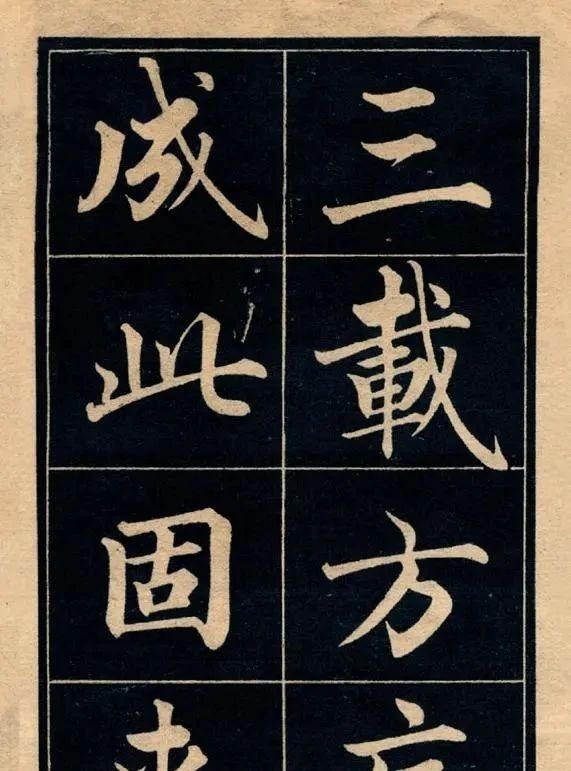 三載方
成此固